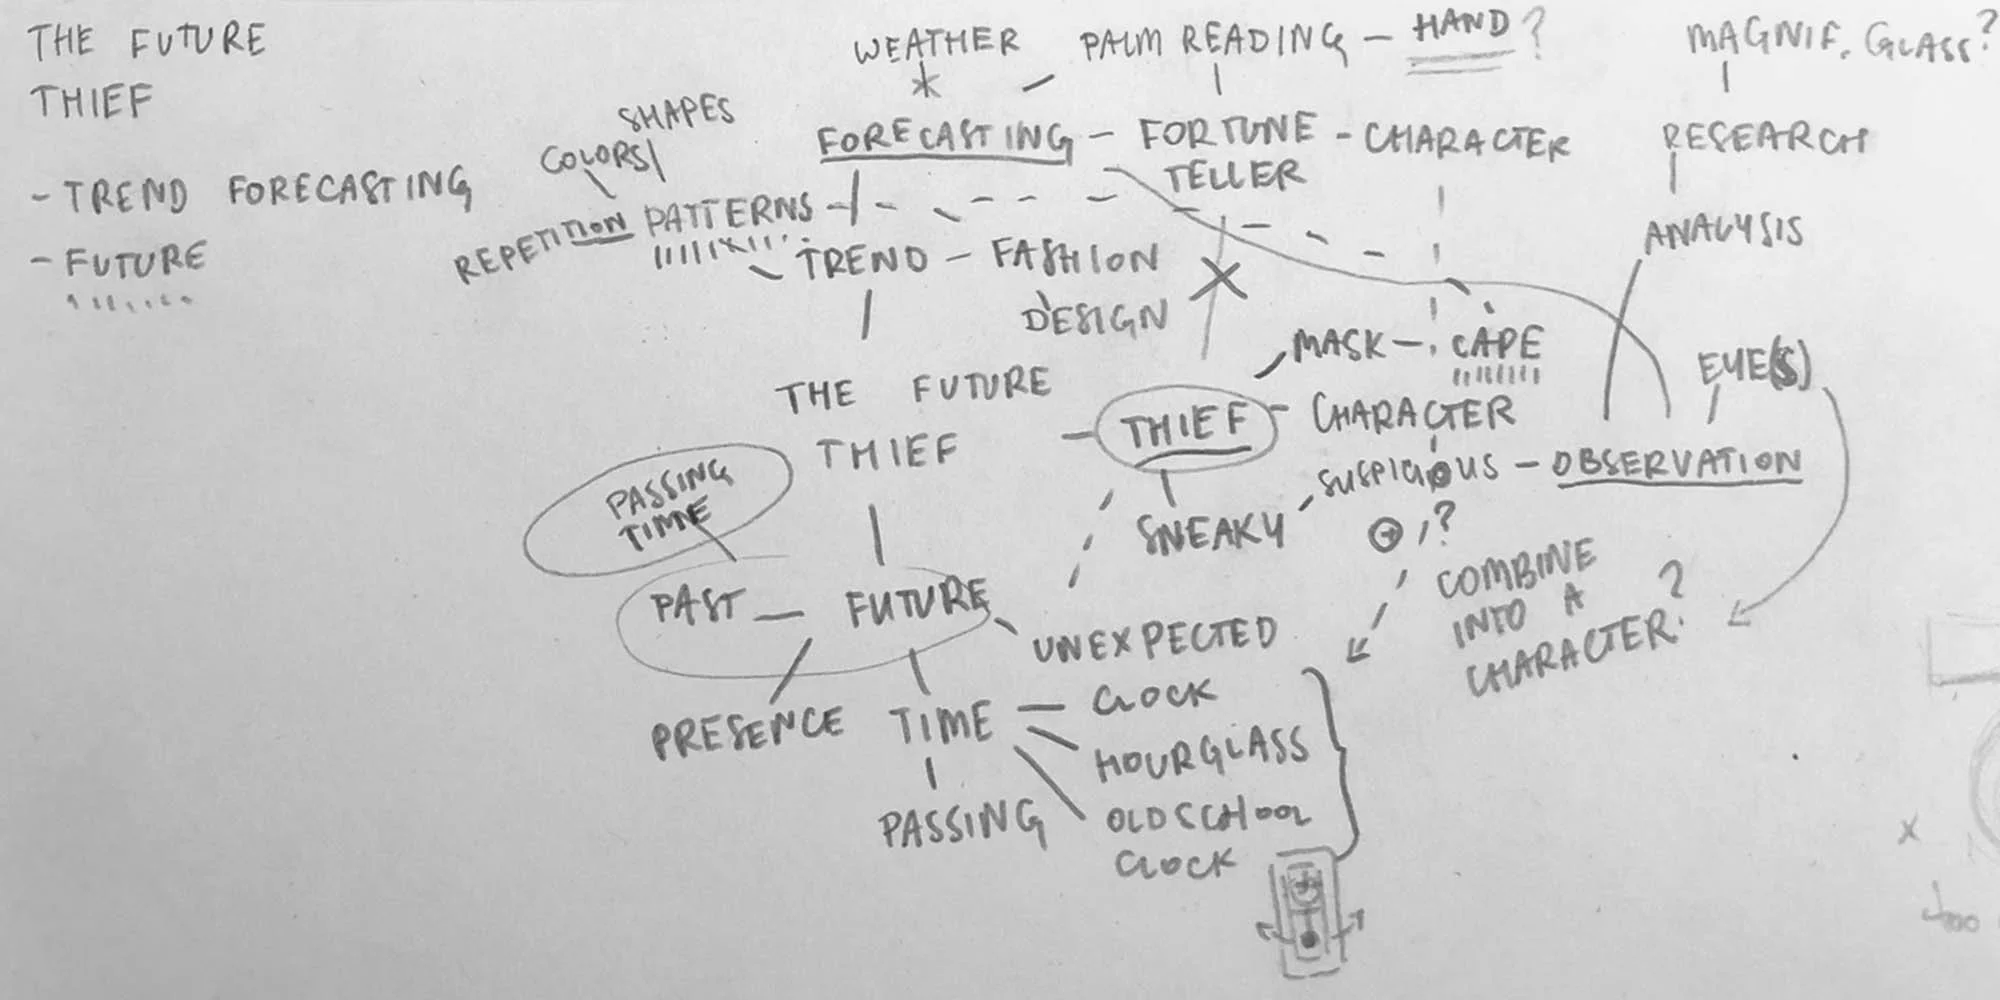 THE FUTURE
THIEF
- TREND FORECASTING
- FUTURE
WEATHER
PALM READING - HAND?
MAGNIF. GLASS?
SHAPES
COLORS
FORECASTING - FORTUNE
TELLER
- CHARACTER
RESEARCH
REPETITION
PATTERNS
ANALYSIS
TREND - FASHION
DESIGN
MASK - CAPE
EYE(S)
THE FUTURE
THIEF
- THIEF - CHARACTER
SUSPICIOUS - OBSERVATION
SNEAKY
?
PASSING
TIME
COMBINE
INTO A
CHARACTER?
PAST - FUTURE
UNEXPECTED
PRESENCE
TIME - CLOCK
HOURGLASS
PASSING
OLDSCHOOL
CLOCK